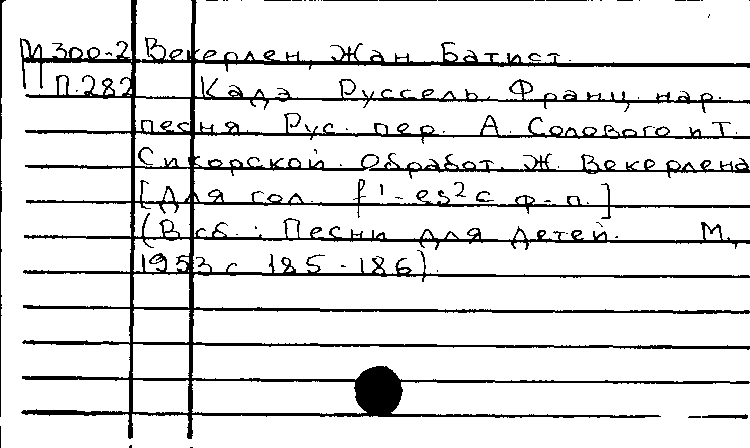 М 300-2 Векерлен, Жан Батист.
П.282 Кадэ Руссель. Франц. нар.
песня. Рус. пер. А. Солового и Т.
Сикорской. Обработ. Ж. Векерлена
[Для гол. f¹-es² с ф-п.]
(В сб.: Песни для детей. М.,
1953 с 185-186).